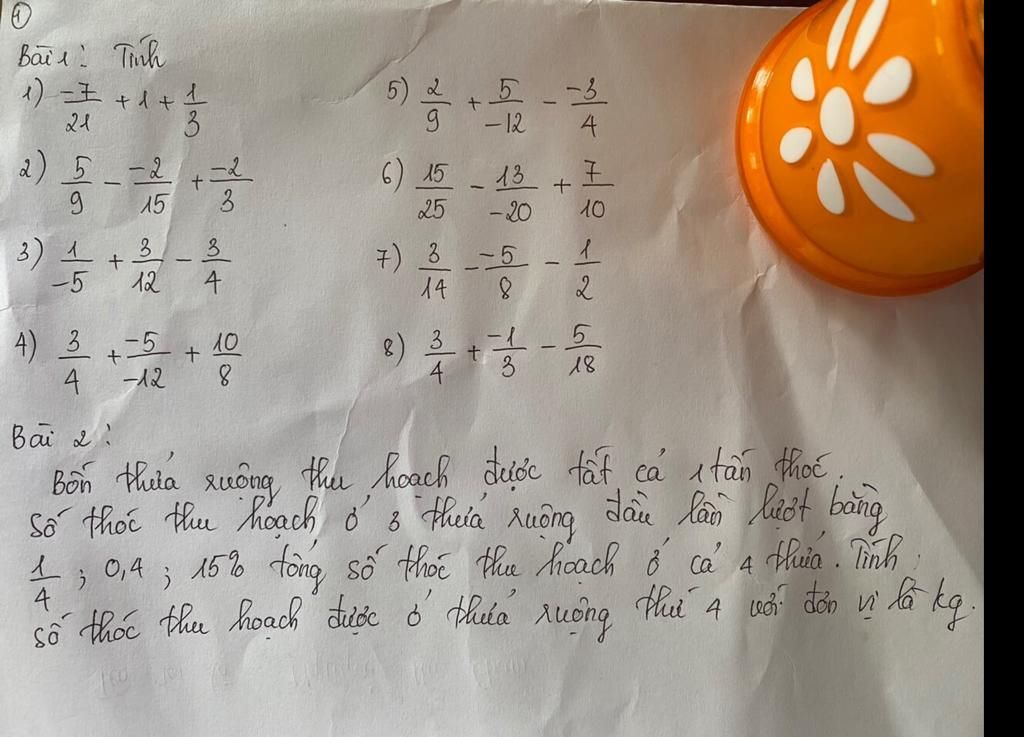 1
Bài 1: Tính
1) -7/21 + 1 + 1/3
5) 2/9 + 5/-12 - -3/4
2) 5/9 - -2/15 + -2/3
6) 15/25 - 13/-20 + 7/10
3) 1/-5 + 3/12 - 3/4
7) 3/14 - -5/8 - 1/2
4) 3/4 + -5/-12 + 10/8
8) 3/4 + -1/3 - 5/18
Bài 2:
Bốn thửa ruộng thu hoạch được tất cả 1 tấn thóc.
Số thóc thu hoạch ở 3 thửa ruộng đầu lần lượt bằng
1/4; 0,4; 15% tổng số thóc thu hoạch ở cả 4 thửa. Tính
số thóc thu hoạch được ở thửa ruộng thứ 4 với đơn vị là kg.